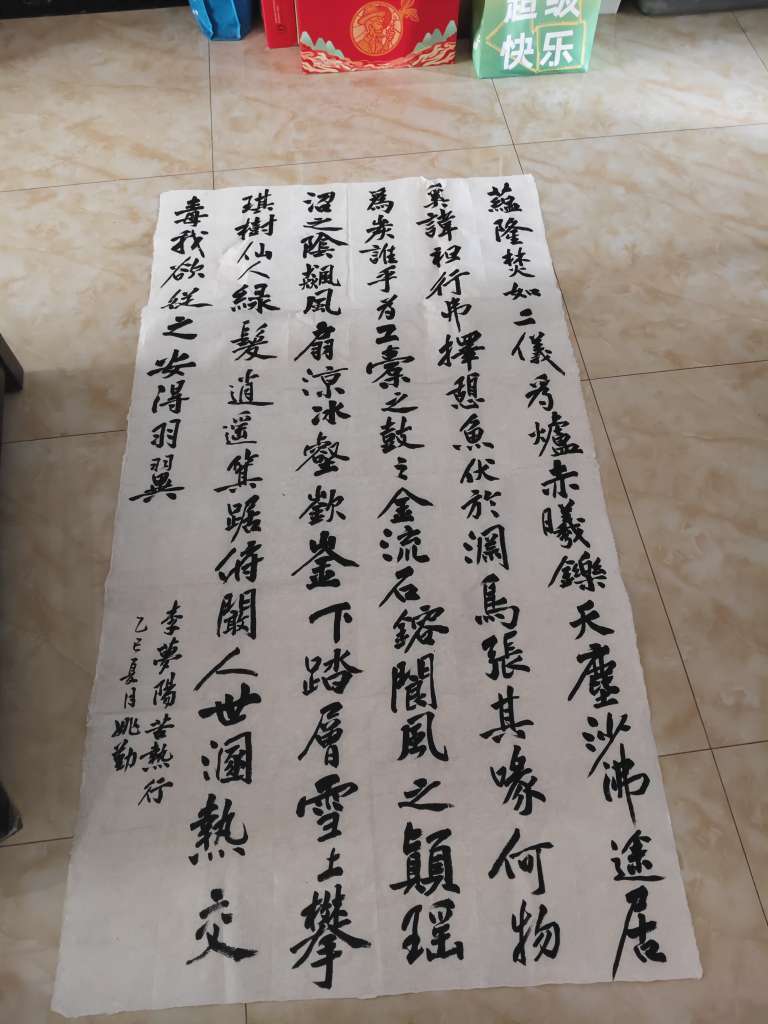 超级
快乐
蘊隆焚如二儀為爐赤曦鑠天塵沙沸途居
奚諱袒行弗擇憩魚伏於瀾馬張其喙何物
為炭誰乎為工橐之鼓之金流石鎔閬風之顛瑤
沼之陰飆風扇涼冰壑崟下踏層雪上攀
琪樹仙人綠髮逍遥箕踞俯闞人世溷熱交
毒我欲從之安得羽翼
李夢陽苦熱行
乙巳夏月姚勤